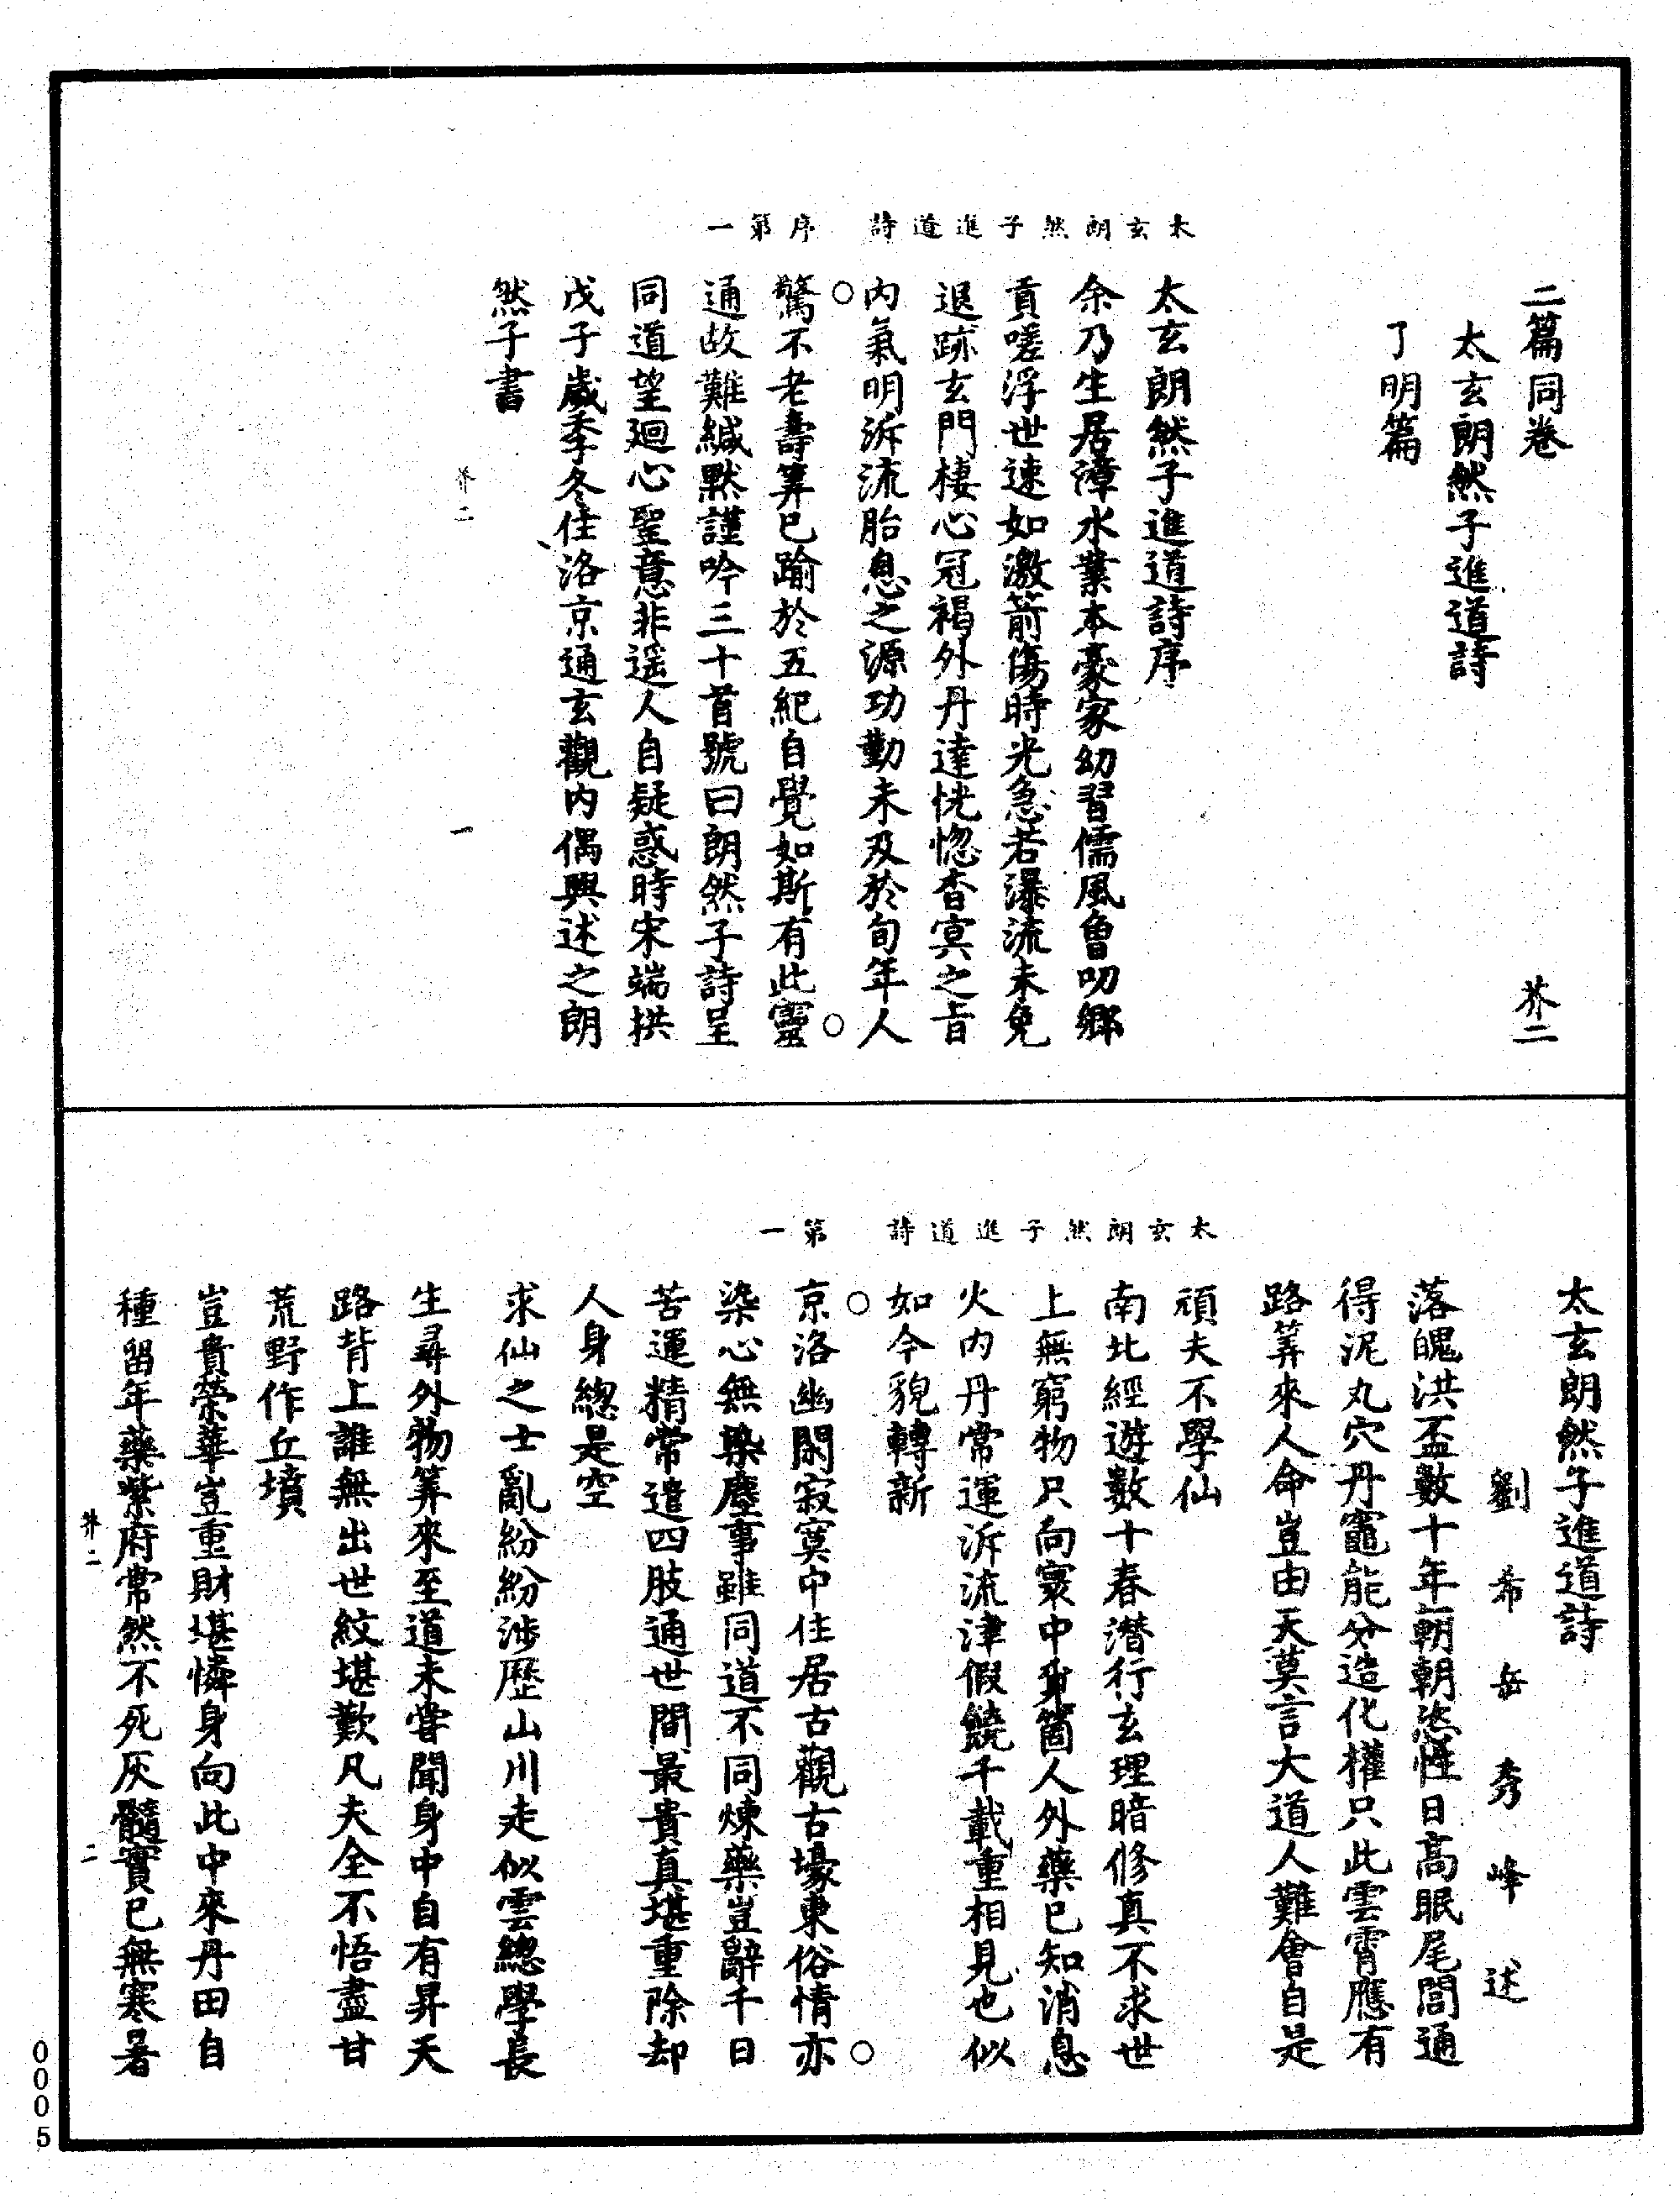 二篇同卷 芥二
太玄朗然子進道詩
了明篇
太玄朗然子進道詩 序 第一
太玄朗然子進道詩序
余乃生居漳水業本豪家幼習儒風曾叨鄉
貢嗟浮世速如激箭傷時光急若瀑流未免
退跡玄門棲心冠褐外丹達恍惚杳冥之旨
內氣明泝流胎息之源功勤未及於旬年人
驚不老壽筭已踰於五紀自覺如斯有此靈
通故難緘默謹吟三十首號曰朗然子詩呈
同道望迴心聖意非遥人自疑惑時宋端拱
戊子歲季冬住洛京通玄觀內偶興述之朗
然子書
芥二 一
太玄朗然子進道詩 第一
太玄朗然子進道詩
劉希岳秀峰述
落魄洪盃數十年朝朝恣性日高眠尾閭通
得泥丸穴丹竈能分造化權只此雲霄應有
路筭來人命豈由天莫言大道人難會自是
頑夫不學仙
南北經遊數十春潛行玄理暗修真不求世
上無窮物只向寰中身箇人外藥已知消息
火內丹常運泝流津假饒千載重相見也似
如今貌轉新
京洛幽閑寂寞中住居古觀古壕東俗情亦
染心無染塵事雖同道不同煉藥豈辭千日
苦運精常遣四肢通世間最貴真堪重除却
人身總是空
求仙之士亂紛紛涉歷山川走似雲總學長
生尋外物筭來至道未嘗聞身中自有昇天
路背上誰無出世紋堪歎凡夫全不悟盡甘
荒野作丘墳
豈貴榮華豈重財堪憐身向此中來丹田自
種留年藥紫府常然不死灰髓實已無寒暑
芥二 二
0005